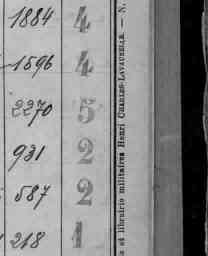 1884 4
1596 4
2270 5
931 2
587 2
268 1
e et librairie militaires Henri CHARLES-LAVAUZELLE. — N.